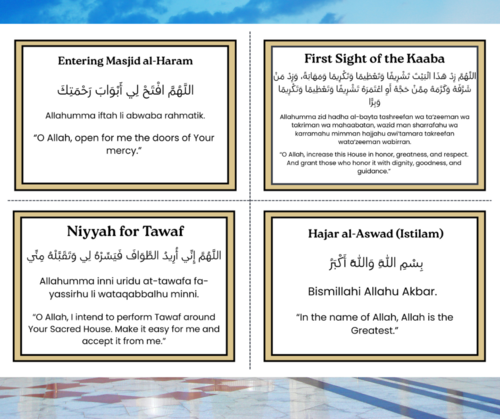 Entering Masjid al-Haram
اللَّهُمَّ افْتَحْ لِي أَبْوَابَ رَحْمَتِكَ
Allahumma iftah li abwaba rahmatik.
“O Allah, open for me the doors of Your
mercy.”
First Sight of the Kaaba
اللَّهُمَّ زِدْ هٰذَا الْبَيْتَ تَشْرِيفًا وَتَعْظِيمًا وَتَكْرِيمًا وَمَهَابَةً، وَزِدْ مَنْ
شَرَّفَهُ وَكَرَّمَهُ مِمَّنْ حَجَّهُ أَوِ اعْتَمَرَهُ تَشْرِيفًا وَتَعْظِيمًا وَتَكْرِيمًا
وَبِرًّا
Allahumma zid hadha al-bayta tashreefan wa ta’zeeman wa
takriman wa mahaabatan, wazid man sharrafahu wa
karramahu mimman hajjahu awi’tamara takreefan
wata’zeeman wabirran.
“O Allah, increase this House in honor, greatness, and respect.
And grant those who honor it with dignity, goodness, and
guidance.”
Niyyah for Tawaf
اللَّهُمَّ إِنِّي أُرِيدُ الطَّوَافَ فَيَسِّرْهُ لِي وَتَقَبَّلْهُ مِنِّي
Allahumma inni uridu at-tawafa fa-
yassirhu li wataqabbalhu minni.
“O Allah, I intend to perform Tawaf around
Your Sacred House. Make it easy for me and
accept it from me.”
Hajar al-Aswad (Istilam)
بِسْمِ اللّٰهِ وَاللّٰهُ أَكْبَرُ
Bismillahi Allahu Akbar.
“In the name of Allah, Allah is the
Greatest.”